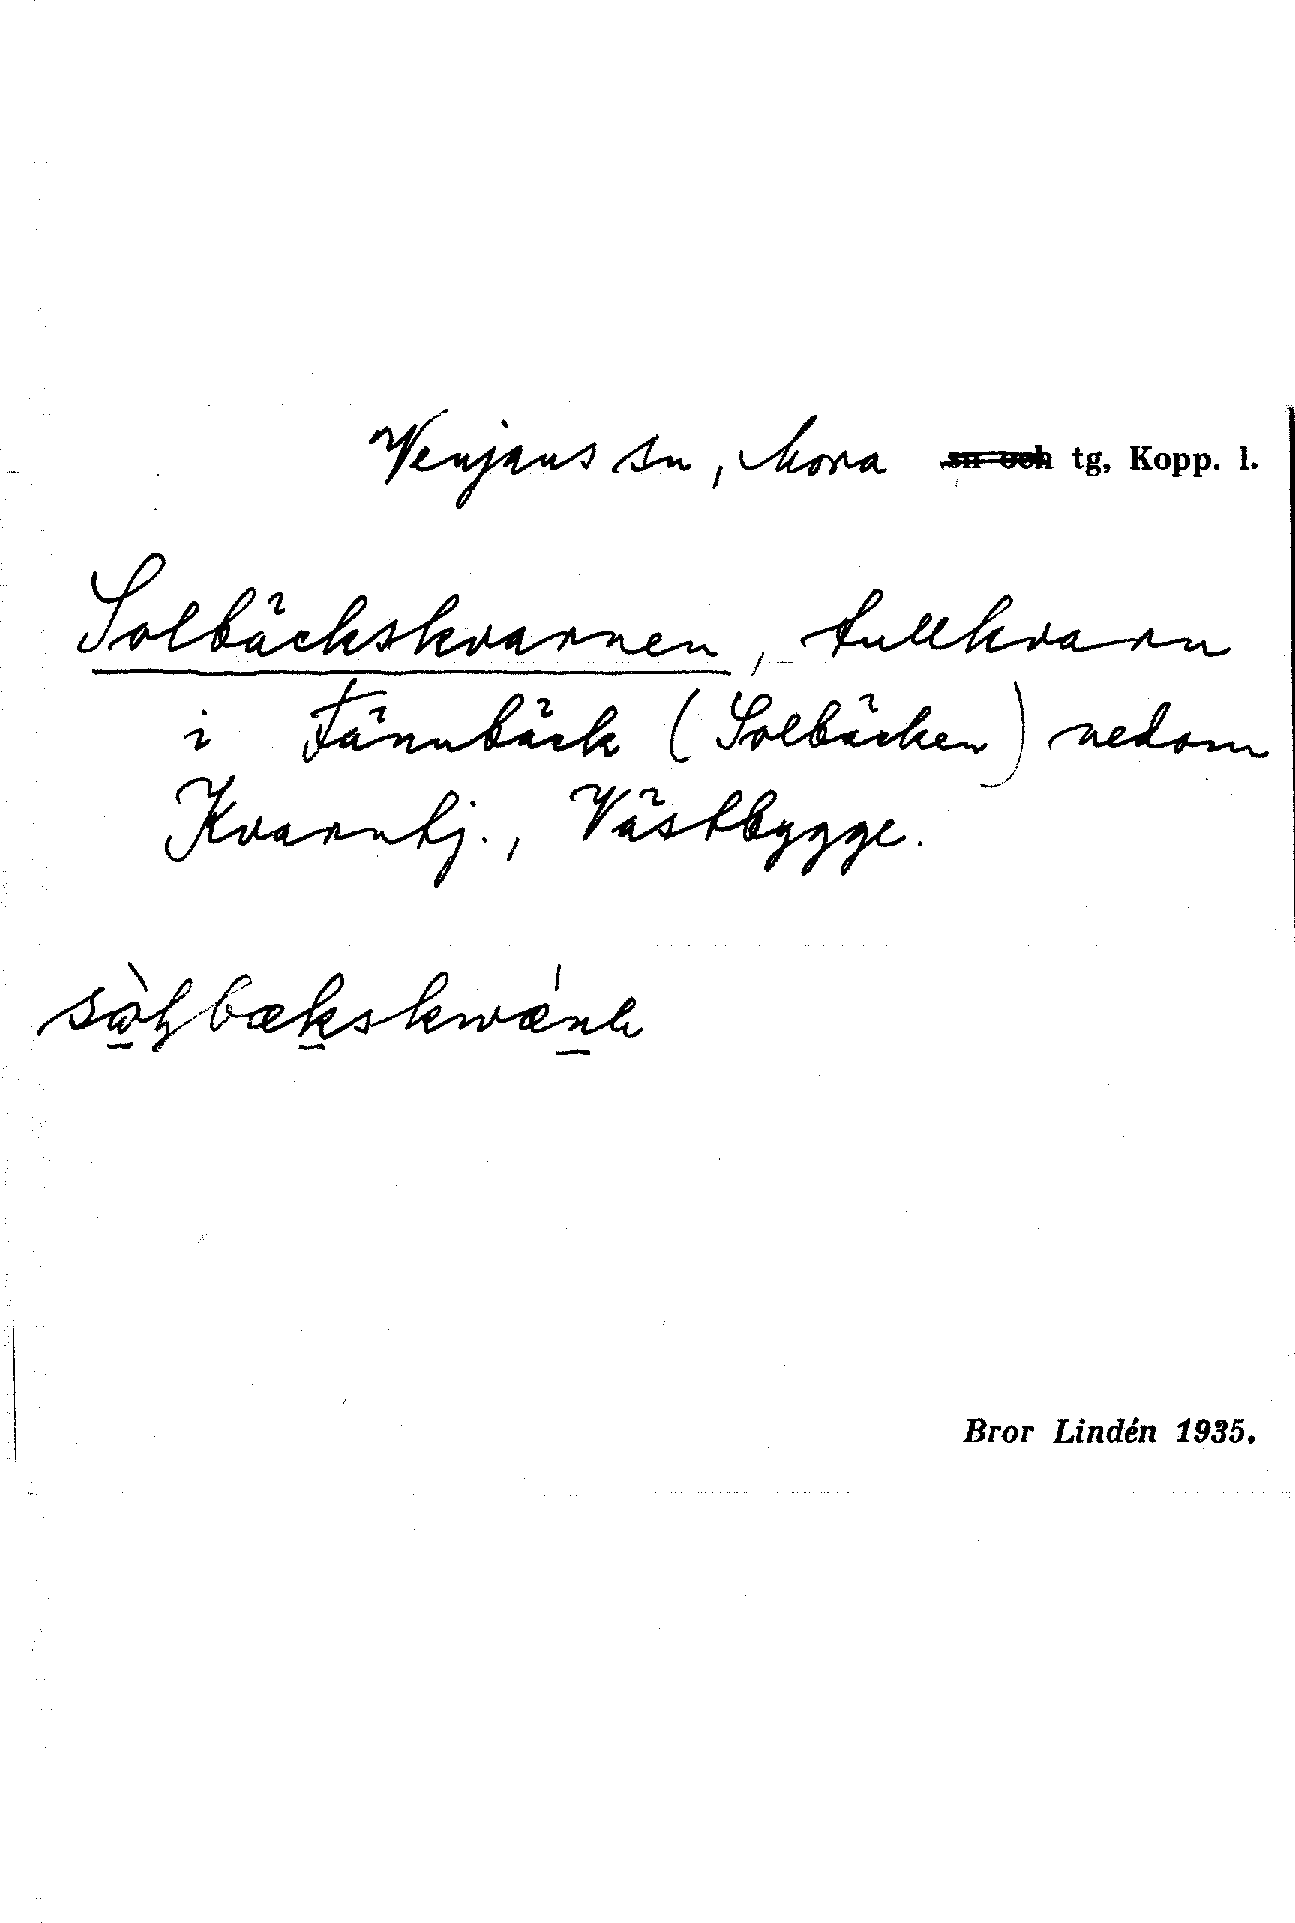 Venjans sn, Mora sn och tg, Kopp. l.
Solbäckskvarnen, tullkvarn
i Fännbäck (Solbäcken) nedom
Kvarntj., Västbygge.
Bror Lindén 1935.